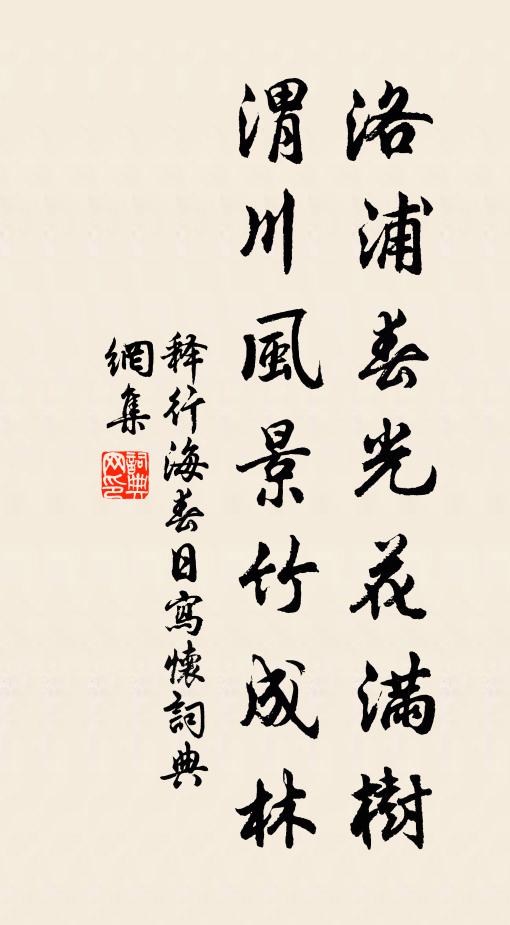 洛浦春光花滿樹
渭川風景竹成林
释行海春日寫懷詞典
網集
詞典
网印